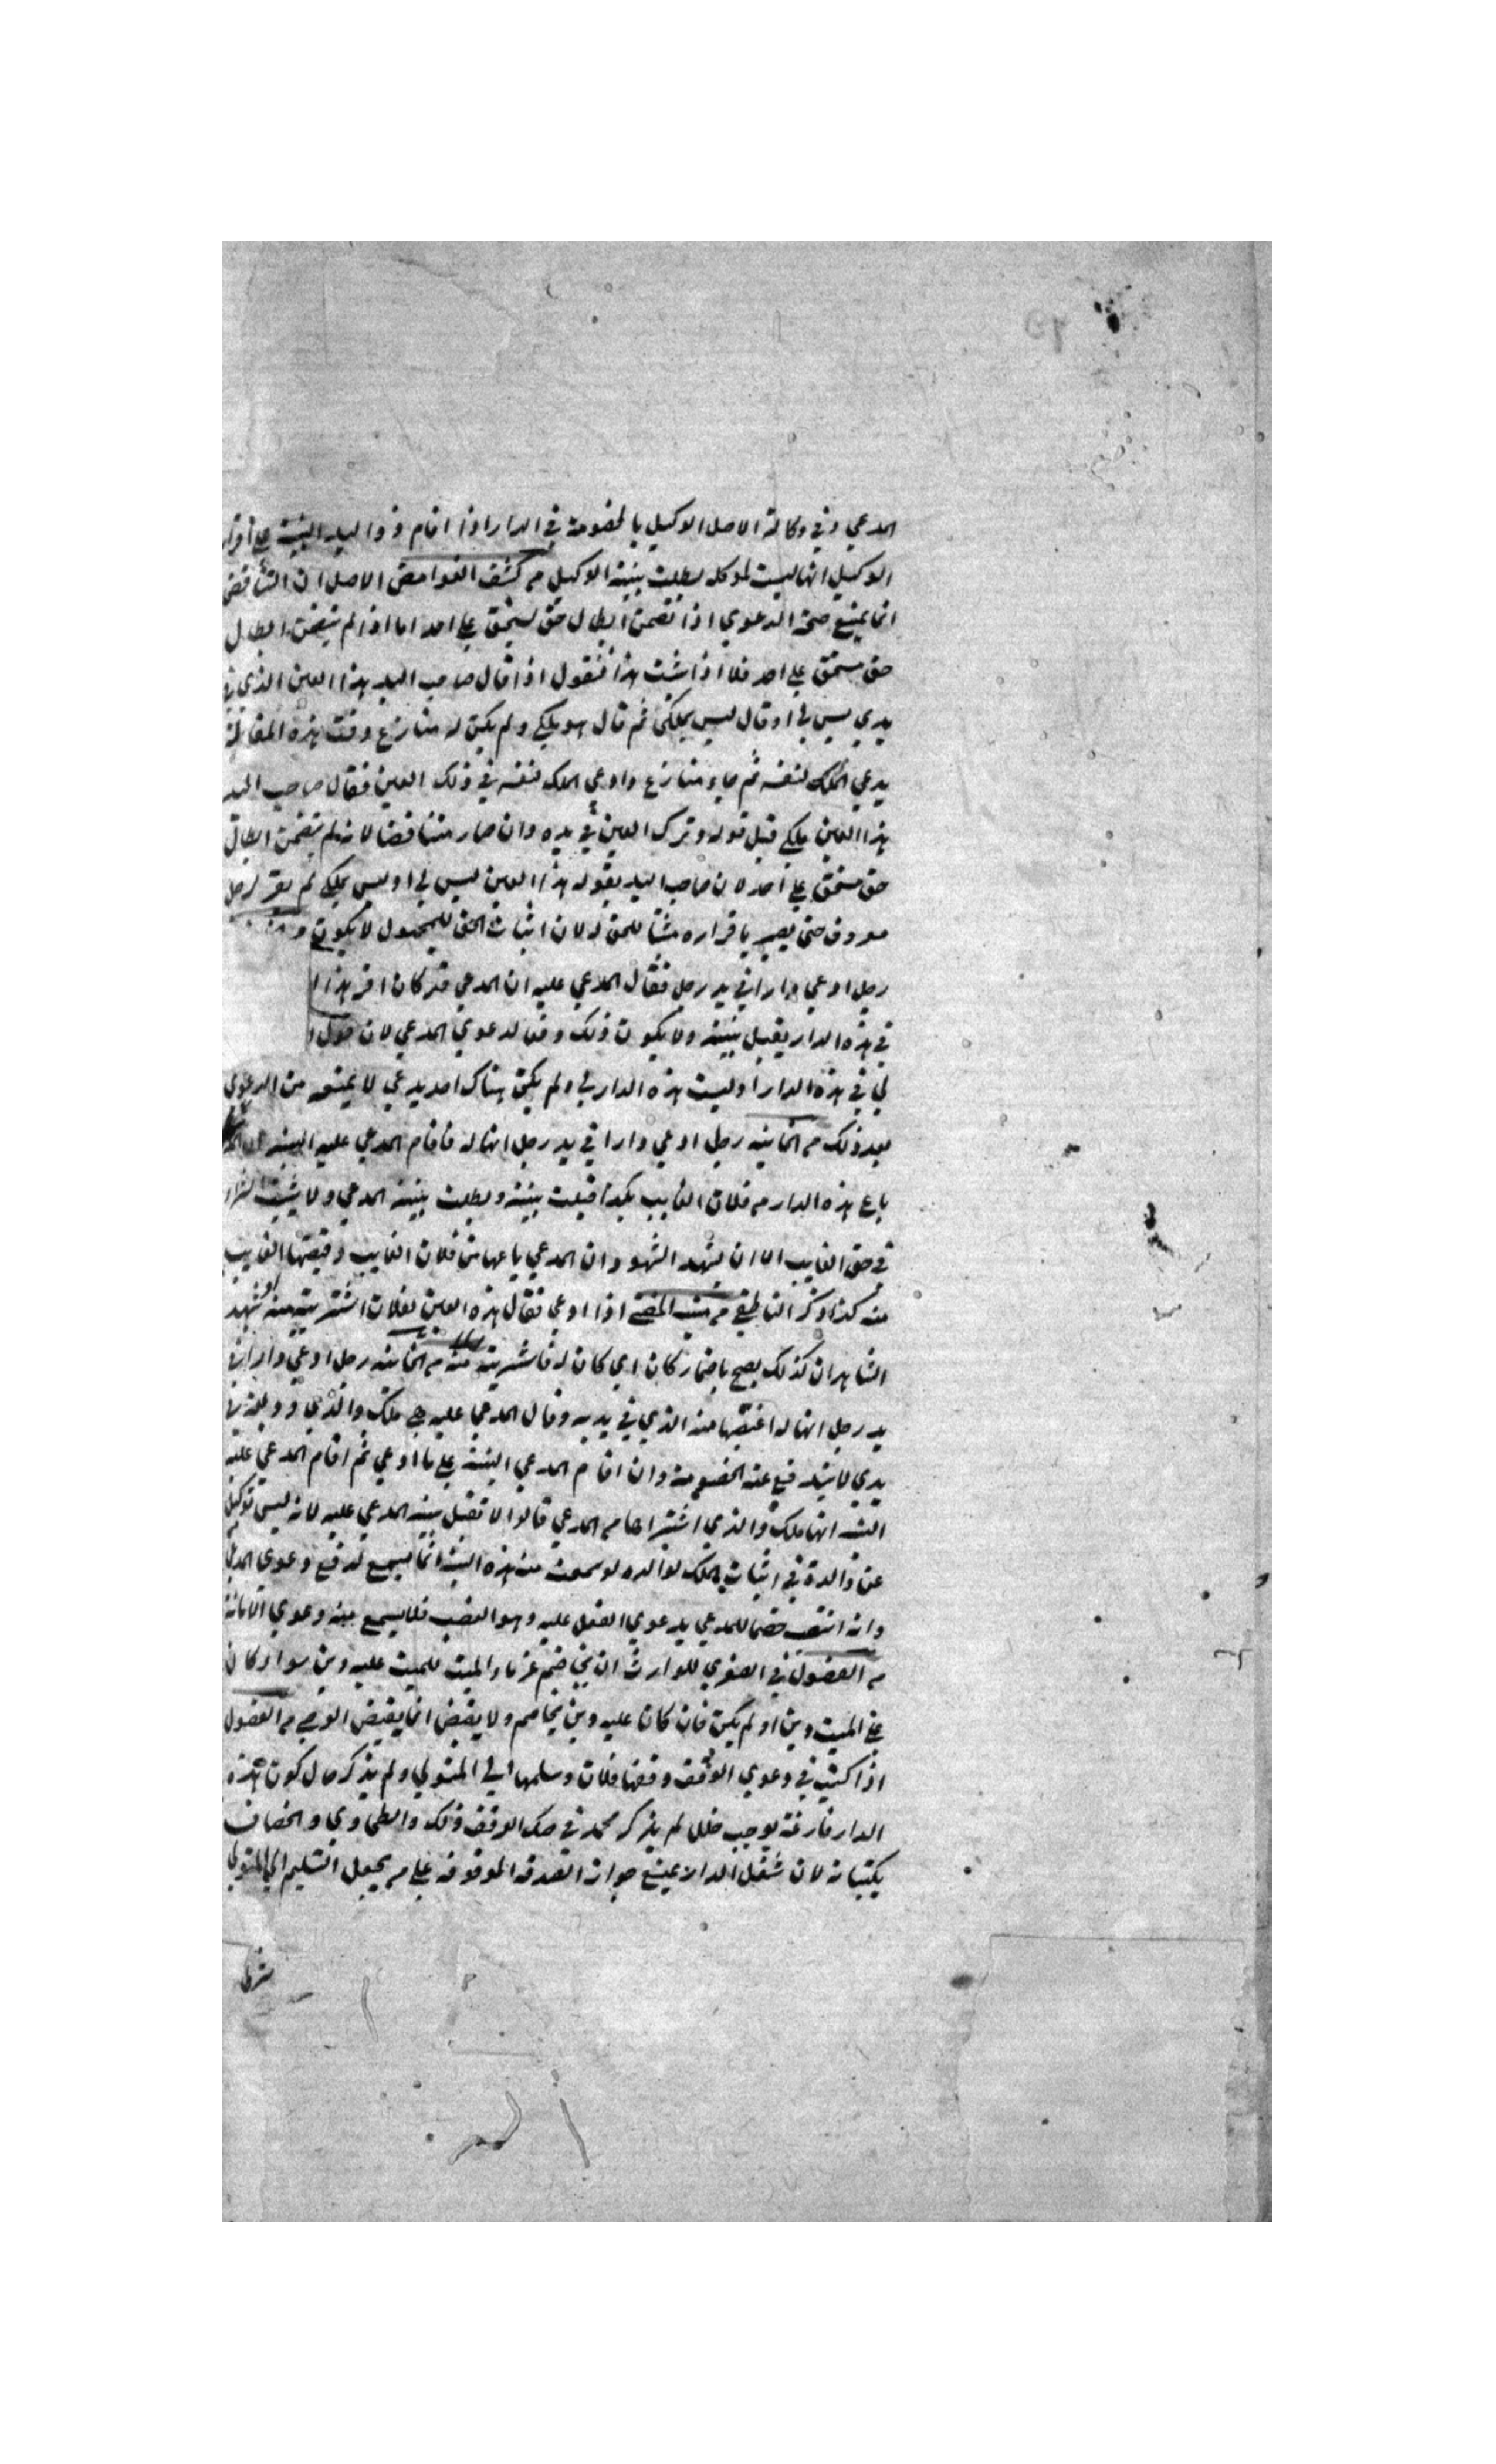 المدعي وفي وكالة الاصل الوكيل بالخصومة في الدار اذا اقام ذو اليد البينة على اقرار
الوكيل انها ليست لموكله بطلت بينة الوكيل من كشف الغوامض الاصل ان التناقض
انما يمنع صحة الدعوي اذا تضمن ابطال حق لمستحق على احد اما اذا لم يتضمن ابطال
حق مستحق على احد فلا اذا ثبت هذا فنقول اذا قال صاحب اليد هذا العين الذي في
يدي ليس لي او قال ليس بملكي ثم قال هو ملكي ولم يكن له منازع وقت هذه المقالة
يدعي الملك لنفسه ثم جاء منازع وادعي الملك لنفسه في ذلك العين فقال صاحب اليد
هذا العين ملكي قبل قوله وترك العين في يده وان صار متناقضا لانه لم يتضمن ابطال
حق مستحق على احد لان صاحب اليد بقوله هذا العين ليس لي او ليس بملكي لم يقر لرجل
معروف حتى يصير باقراره مثبتا للحق له لان اثبات الحق للمجهول لا يكون
رجل ادعي دارا في يد رجل فقال المدعي عليه ان المدعي قد كان اقر
في هذه الدار يقبل بينته ولا يكون ذلك دفعا لدعوي المدعي لان قول
لي في هذه الدار او ليست هذه الدار لي ولم يكن هناك احد يدعي لا يمنعه من الدعوي
بعد ذلك من الخانيه رجل ادعي دارا في يد رجل انها له فاقام المدعي عليه البينه ان
باع هذه الدار من فلان الغايب بكذا قبلت بينته وبطلت بينة المدعي ولا يثبت الشراء
في حق الغايب الا ان يشهد الشهود ان المدعي باعها من فلان الغايب وقبضها الغايب
منه كذا ذكر الناطفي من اذا ادعي فقال هذه العين لفلان اشتريته منه وشهد
الشاهدان كذلك يصح باضمار كان اي كان له فاشتريته منه من الخانيه رجل ادعي دارا في
يد رجل انها له اغتصبها منه الذي في يديه وقال المدعي عليه هي ملك والدي وديعة في
يدي لا يندفع عنه الخصومة وان اقام المدعي البينة على ما ادعي ثم اقام المدعي عليه
البينة انها ملك والدي اشتراها من المدعي قالوا لا تقبل بينة المدعي عليه لانه ليس بوكيل
عن والده في اثبات الملك لوالده لو سمعت منه هذه البينة انما يسمع لدفع دعوى المدعي
وانه انتصب خصما للمدعي بدعوي الفعل عليه وهو الغصب فلا يسمع منه دعوي الامانة
من الفصول في الصغري للوارث ان يخاصم غرماء الميت للميت عليه دين سواء كان
علي الميت دين او لم يكن فان كان عليه دين يخاصم ولا يقبض انما يقبض الوصي من الفصول
اذا كتب في دعوي الوقف وقفها فلان وسلمها الي المتولي ولم يذكر حال كون هذه
الدار فارغة يوجب خللا لم يذكر محمد في صك الوقف ذلك والطحاوي والخصاف
يكتبانه لان شغل الدار يمنع جواز الصدقة الموقوفة علي من يجعل التسليم الي المتولي
شرطا